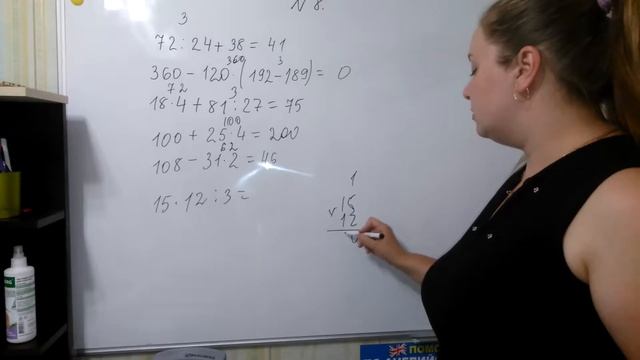 N 8.
3
72 : 24 + 38 = 41
360 3
360 - 120 · (192 - 189) = 0
72 3
18 · 4 + 81 : 27 = 75
100
100 + 25 · 4 = 200
62
108 - 31 · 2 = 46
15 · 12 : 3 =
1
15
12
ПОМО